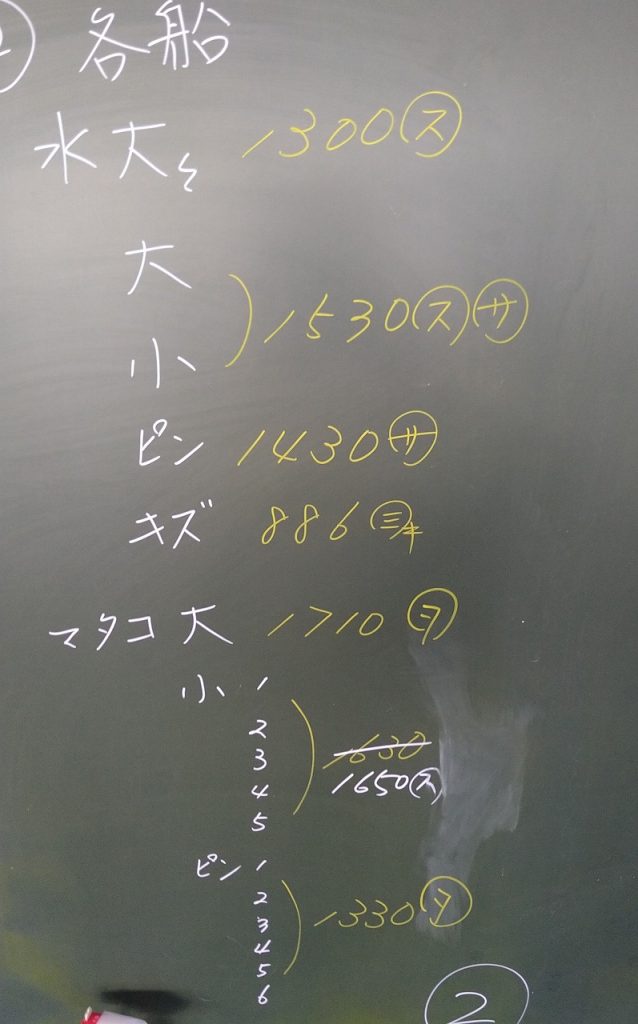 各船
水大 1300㋜
大
小 1530㋜㋚
ピン 1430㋚
キズ 886㊂
マタコ 大 1710㋾
小 1
2
3 1630
4 1650㋜
5
ピン 1
2
3 1330
4
5
6
②